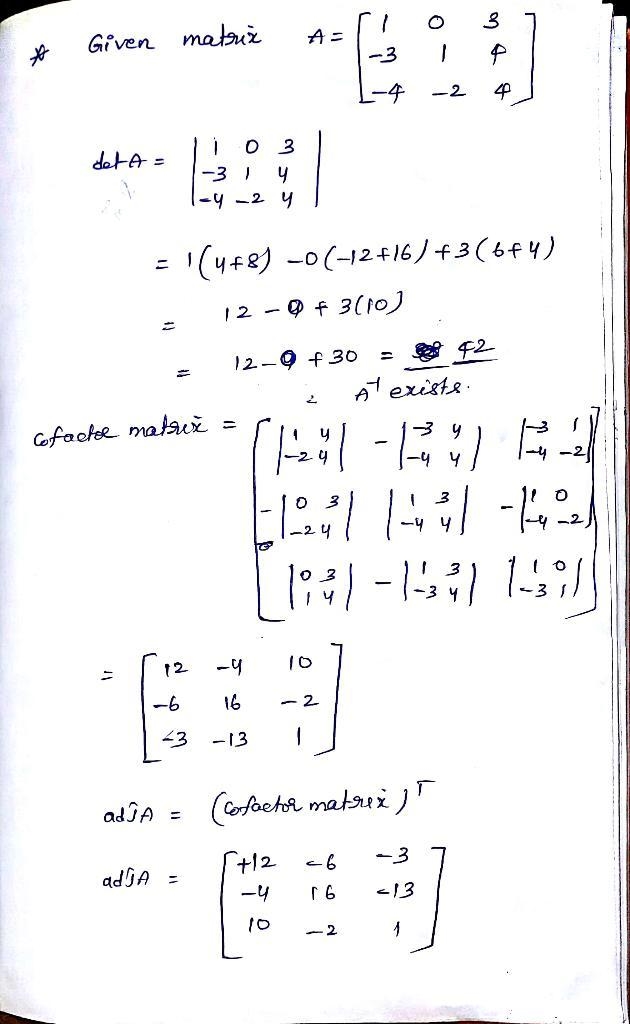 * Given matrix A = [1 0 3; -3 1 4; -4 -2 4]
det A = |1 0 3; -3 1 4; -4 -2 4|
= 1(4+8) -0(-12+16) +3(6+4)
= 12 - 0 + 3(10)
= 12 - 0 + 30 = 42
∴ A⁻¹ exists.
Cofactor matrix = [|1 4; -2 4| -|-3 4; -4 4| |-3 1; -4 -2|
-|0 3; -2 4| |1 3; -4 4| -|1 0; -4 -2|
|0 3; 1 4| -|1 3; -3 4| |1 0; -3 1|]
= [12 -4 10
-6 16 -2
-3 -13 1]
adjA = (Cofactor matrix)ᵀ
adjA = [+12 -6 -3
-4 16 -13
10 -2 1]